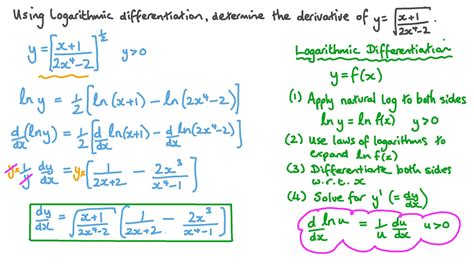 Using Logarithmic differentiation, determine the derivative of y = √((x+1)/(2x⁴-2)).
y = [(x+1)/(2x⁴-2)]^(1/2) y>0
ln y = 1/2 [ln(x+1) - ln(2x⁴-2)]
d/dx (ln y) = 1/2 [d/dx ln(x+1) - d/dx ln(2x⁴-2)]
y× 1/y dy/dx = y× [1/(2x+2) - 2x³/(x⁴-1)]
dy/dx = √((x+1)/(2x⁴-2)) [1/(2x+2) - 2x³/(x⁴-1)]
Logarithmic Differentiation
y = f(x)
(1) Apply natural log to both sides
ln y = ln f(x) y>0
(2) Use laws of logarithms to
expand ln f(x)
(3) Differentiate both sides
w.r.t. x
(4) Solve for y' (= dy/dx)
d/dx ln u = 1/u du/dx u>0